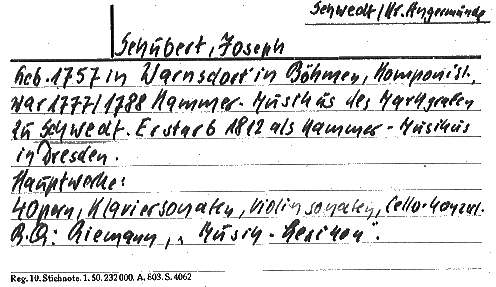 Schwedt/Kr. Angermünde
Schubert, Joseph
Geb. 1757 in Warnsdorf in Böhmen, Komponist,
war 1777/1788 Kammer-Musikus des Markgrafen
zu Schwedt. Er starb 1812 als Kammer-Musikus
in Dresden.
Hauptwerke:
4 Opern, Klaviersonaten, Violinsonaten, Cello-Konzert.
B.Q.: Riemann, „Musik-Lexikon".
Reg. 10. Stichnote. 1. 50. 232 000. A. 803. S. 4062